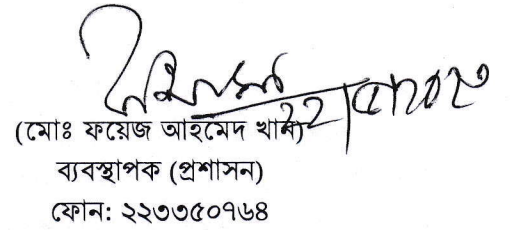 (মোঃ ফয়েজ আহমেদ খান)
ব্যবস্থাপক (প্রশাসন)
ফোন: ২২৩৩৫০৭৬৪